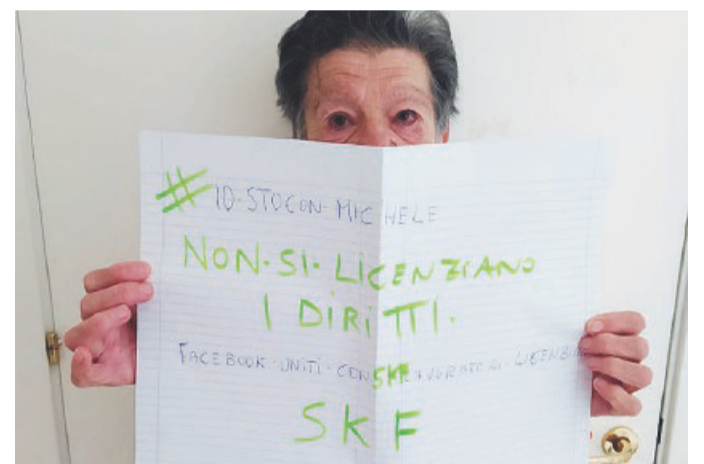 # IO·STOCON·MICHELE
NON·SI·LICENZIANO
I DIRITTI.
FACEBOOK·UNITI·CON SKF
SKF